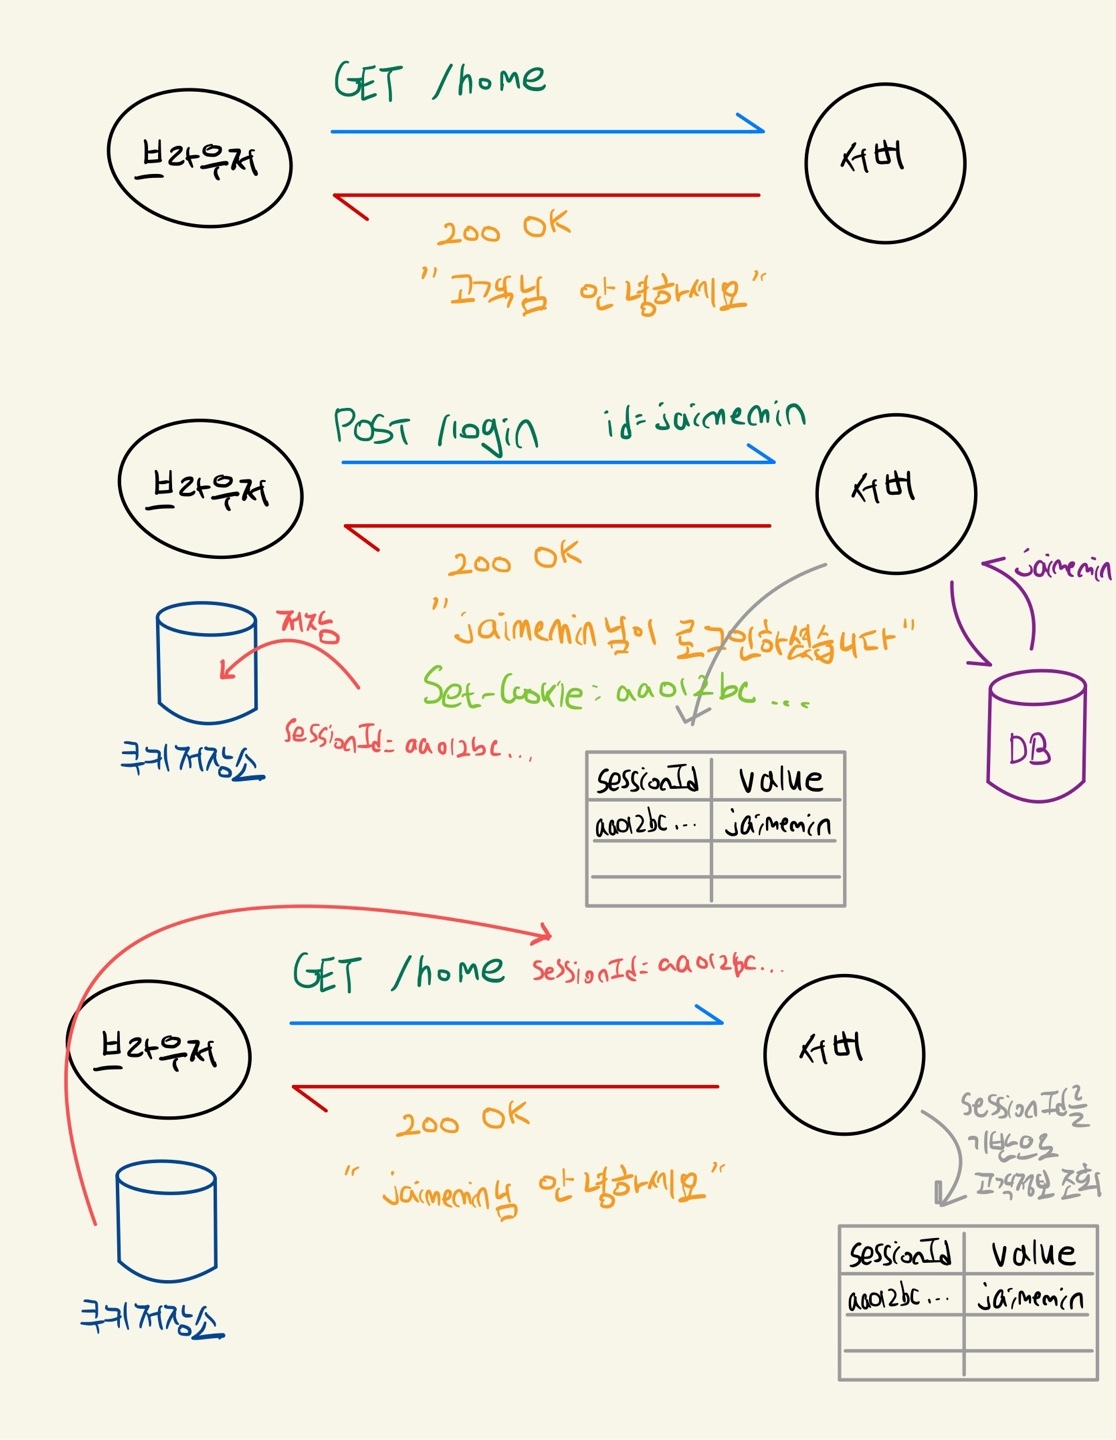 GET /home
브라우저
서버
200 OK
"고객님 안녕하세요"
POST /login id=jaimemin
브라우저
서버
200 OK
"jaimemin님이 로그인하셨습니다"
Set-Cookie: aa012bc...
jaimemin
DB
저장
sessionId=aa012bc...
쿠키저장소
sessionId value
aa012bc... jaimemin
GET /home sessionId=aa012bc...
브라우저
서버
200 OK
"jaimemin님 안녕하세요"
sessionId를
기반으로
고객정보 조회
쿠키저장소
sessionId value
aa012bc... jaimemin